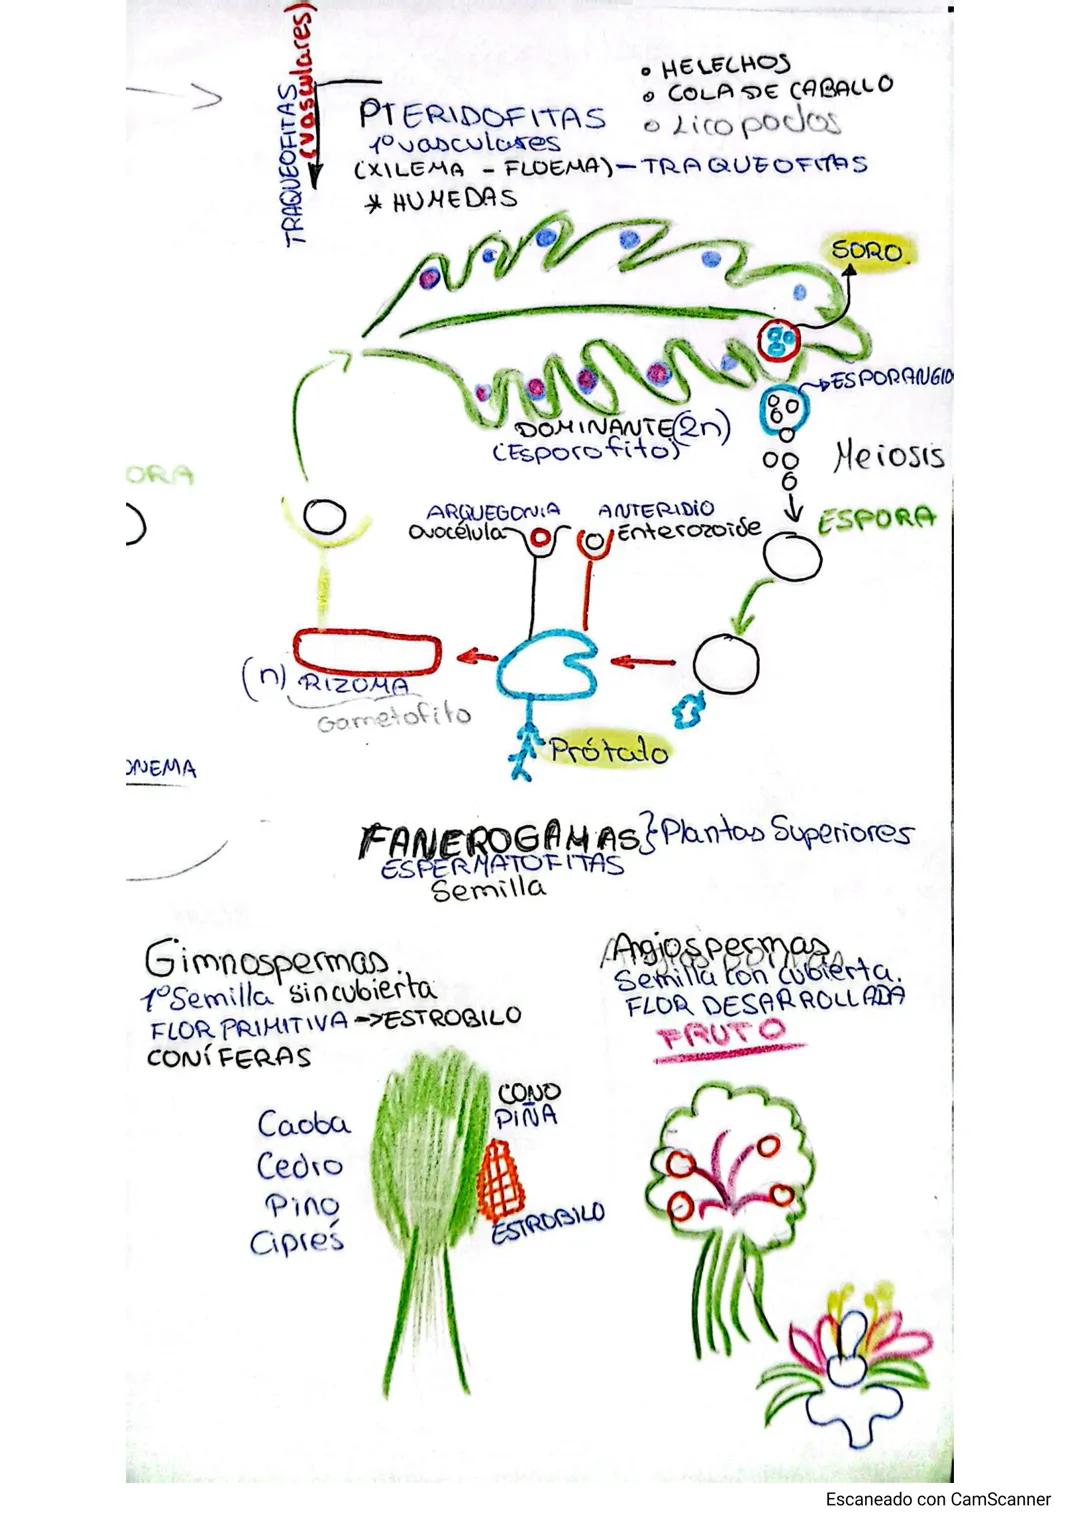 TRAQUEOFITAS
(vasculares)
PTERIDOFITAS
1º vasculares
(XILEMA - FLOEMA) - TRAQUEOFITAS
* HUMEDAS
• HELECHOS
• COLA DE CABALLO
• Licopodos
SORO
ESPORANGIO
DOMINANTE (2n)
(Esporofito)
Meiosis
ORA
ARQUEGONIA
Ovocélula
ANTERIDIO
Enterozoide
ESPORA
(n) RIZOMA
Gametofito
Prótalo
ONEMA
FANEROGAMAS} Plantas Superiores
ESPERMATOFITAS
Semilla
Gimnospermas.
1º Semilla sin cubierta
FLOR PRIMITIVA -> ESTROBILO
CONÍFERAS
Caoba
Cedro
Pino
Ciprés
CONO
PIÑA
ESTROBILO
Angiospermas
Semilla con cubierta.
FLOR DESARROLLADA
FRUTO
Escaneado con CamScanner